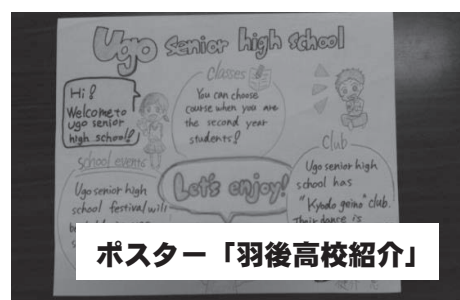 Ugo senior high school
Hi!
Welcome to
Ugo senior
high school!
Classes
You can choose
course when you are
the second year
students!
school events
Ugo senior high
school festival will
Let's enjoy!
Club
Ugo senior high
school has
"Kyodo geino" club.
Their dance is
ポスター「羽後高校紹介」